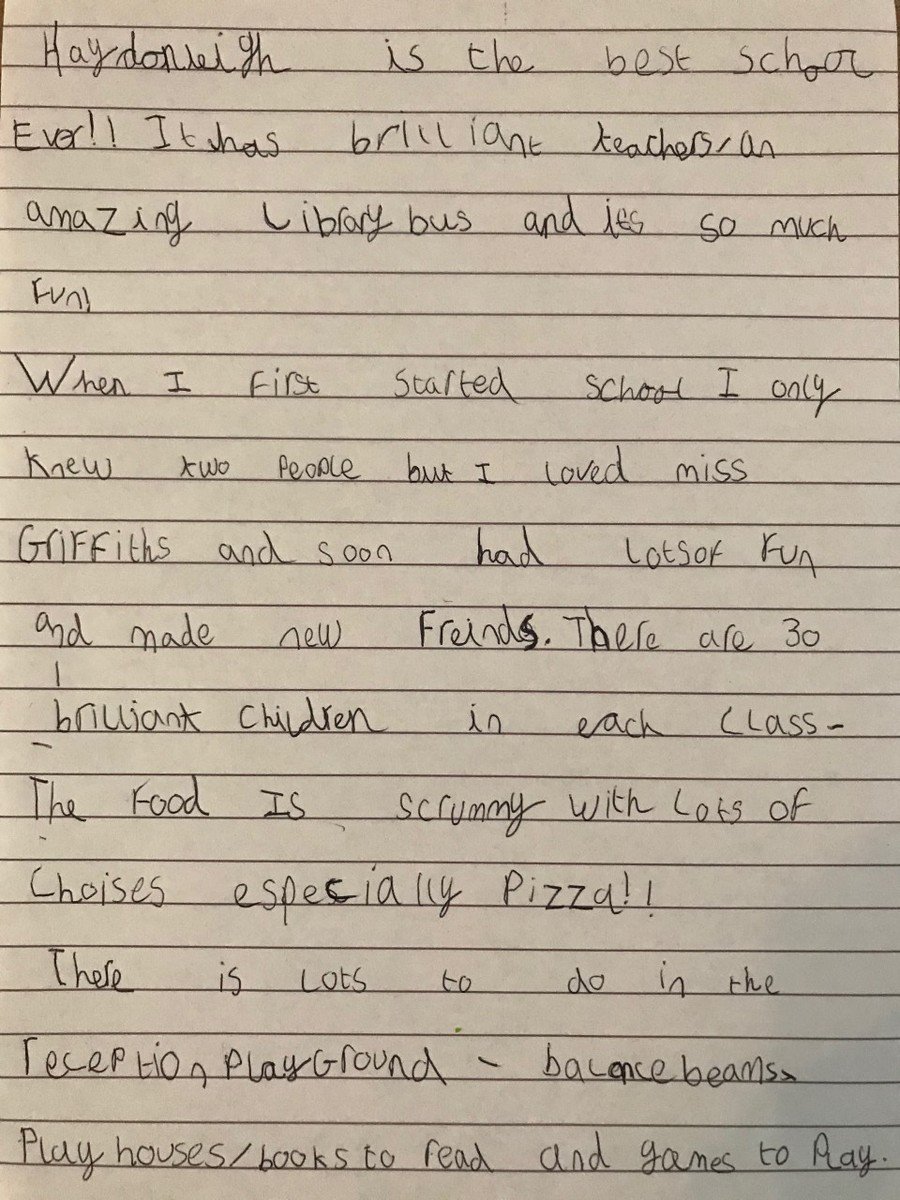 Haydonleigh is the best school
Ever!! It has brilliant teachers, an
amazing Library bus and its so much
Fun!
When I First started school I only
Knew two people but I loved miss
Griffiths and soon had lots of Fun
and made new Freinds. There are 30
brilliant children in each class-
The Food Is scrummy with Lots of
Choises especially Pizza!!
There is Lots to do in the
reception playGround - balence beams,
Play houses, books to read and games to Play.